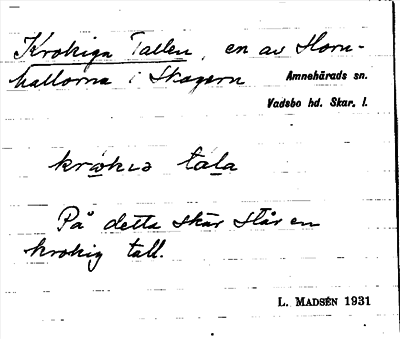 Krokiga Tallen, en av Horn-
hallorna i Skagern
Amnehärads sn.
Vadsbo hd. Skar. l.
krokiə tala
På detta skär står en
krokig tall.
L. MADSÉN 1931